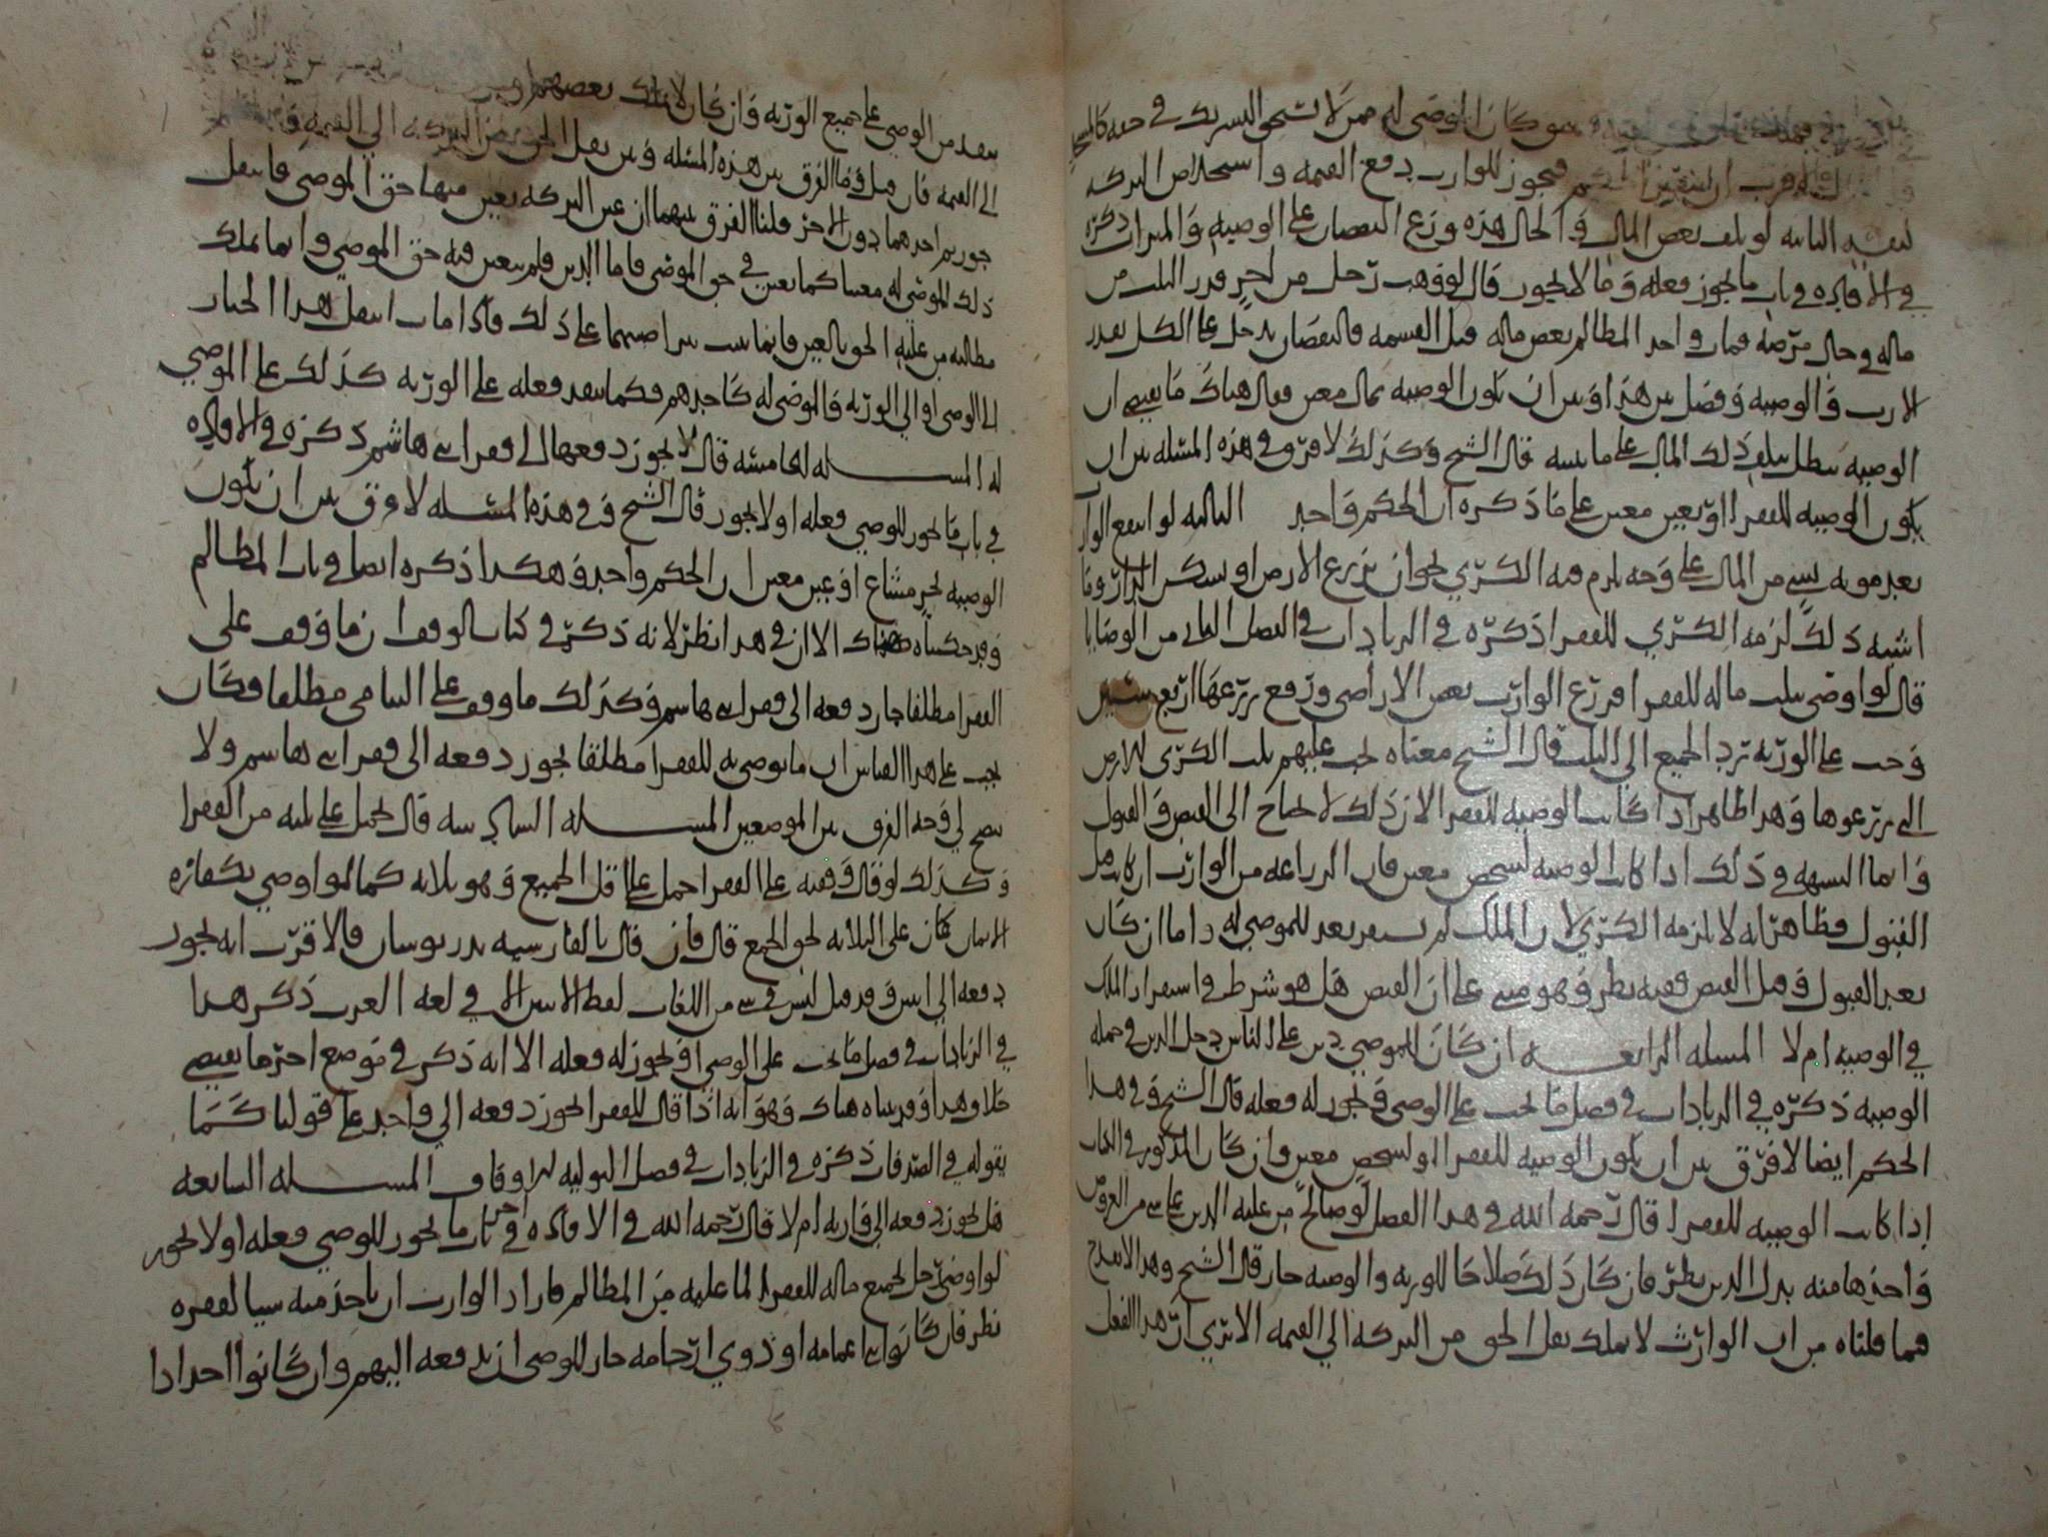 سو كان الموصى له ممن لا تستحق الشريك في حقه كالمسجد
فيجوز للوارث دفع القيمة واستخلاص التركة
الثانية لو تلف بعض المال والحال هذه وزع النقصان على الوصية والميراث ذكره
في الافادة في باب ما يجوز فعله وما لا يجوز قال لو وهب رجل من اخر قدر الثلث من
ماله في حال مرضه فمات واخذ المظالم بعض ماله قبل القسمة فالنقصان يدخل على الكل بقدر
الارث والوصية وفصل بين هذا وبين ان تكون الوصية بمال معين فقال هناك ما يقتضي ان
الوصية تبطل بتلف ذلك المال على ما نبينه قال الشيخ وكذلك لا فرق في هذه المسئلة بين ان
يكون الوصية للفقراء او لغير معين على ما ذكره ان الحكم واحد الثالثة لو انتفع الوارث
بعد موته بشي من المال على وجه يلزم فيه الكرى نحو ان يزرع الارض او يسكن الدار وما
اشبه ذلك لزمه الكرى للفقراء ذكره في الزيادات في الفصل الثاني من الوصايا
قال لو اوصى بثلث ماله للفقراء فزرع الوارث بعض الاراضي ودفع بزرعها اربع سنين
وجب على الورثة ترد الجميع الى الثلث قال الشيخ معناه يجب عليهم ثلث الكرى للارض
التي يزرعوها وهذا ظاهر اذا كانت الوصية للفقراء لان ذلك لا يحتاج الى القبض والقبول
وانما الشبهة في ذلك اذا كانت الوصية لشخص معين فان الزراعة من الوارث ان كانت قبل
القبول فظاهر انه لا يلزمه الكرى لان الملك لم يستقر بعد للموصى له واما ان كان
بعد القبول وقبل القبض ففيه نظر وهو مبني على ان القبض هل هو شرط في استقرار الملك
في الوصية ام لا المسئلة الرابعة ان كان للموصي دين على الناس دخل الدين في جملة
الوصية ذكره في الزيادات في فصل ما يجب على الوصي ويجوز له فعله قال الشيخ وفي هذا
الحكم ايضا لا فرق بين ان يكون الوصية للفقراء او لشخص معين وان كان المذكور في الكتاب
اذا كانت الوصية للفقراء قال رحمه الله في هذا الفصل لو صالح من عليه الدين على شي من العروض
واخذها منه بدل الدين نظر فان كان ذلك صلاحا للورثة والوصية جاز قال الشيخ وهذا لا يقدح
فيما قلناه من ان الوارث لا يملك نقل الحق من التركة الى القيمة الا ترى ان هذا الفعل
ينفذ من الوصي على جميع الورثة وان كان لا يملك بعضهم
الى القيمة فان قيل وما الفرق بين هذه المسئلة وبين نقل الحق من التركة الى القيمة
جوزتم احدهما دون الاخر قلنا الفرق بينهما ان عين التركة تعين فيها حق الموصي فانتقل
ذلك للموصى له معينا كما تعين في حق الموصي فاما الدين فلم يتعين فيه حق الموصي وانما يملك
مطالبة من عليه الحق بالعين فانما يثبت بتراضيهما على ذلك فاذا مات انتقل هذا الخيار
الى الوصي او الى الورثة فالموصى له كاحدهم فكما ينفذ فعله على الورثة كذلك على الموصى
له المسئلة الخامسة قال لا يجوز دفعها الى فقراء بني هاشم ذكره في الافادة
في باب ما يجوز للوصي فعله او لا يجوز قال الشيخ وفي هذه المسئلة لا فرق بين ان يكون
الوصية لجزء مشاع او لعين معين ان الحكم واحد وهكذا ذكره ايضا في باب المظالم
وقد حكيناه هناك الا ان في هذا نظر لانه ذكر في كتاب الوقف ان ما وقف على
الفقراء مطلقا جاز دفعه الى فقراء بني هاشم وكذلك ما وقف على اليتامى مطلقا فكان
يجب على هذا القياس ان ما يوصى به للفقراء مطلقا يجوز دفعه الى فقراء بني هاشم ولا
يصح لي وجه الفرق بين الموضعين المسئلة السادسة قال يحمل على ثلثه من الفقراء
وكذلك لو قال وقفته على الفقراء حمل على اقل الجميع وهو ثلاثة كما لو اوصى بكفارة
الايمان كان على الثلاثة نحو الجمع قال فان قال بالفارسية بدرنوسان فالاقرب انه يجوز
دفعه الى اثنين وقد قيل ليس في شي من اللغات لفظ الاثنين الا في لغة العرب ذكر هذا
في الزيادات في فصل ما يجب على الوصي او يجوز له فعله الا انه ذكر في موضع اخر ما يقتضي
خلاف هذا وقد بيناه هناك وهو انه اذا قال للفقراء يجوز دفعه الى واحد على قولنا كما
يقوله في الصدقات ذكره في الزيادات في فصل التولية للاوقاف المسئلة السابعة
هل يجوز دفعه الى قاربه ام لا قال رحمه الله في الافادة في اخر باب ما يجوز للوصي فعله او لا يجوز
لو اوصى رجل بجميع ماله للفقراء لما عليه من المظالم فاراد الوارث ان ياخذ منه شيا لفقره
نظر فان كانوا بني اعمامه او ذوي ارحامه جاز للوصي ان يدفعه اليهم وان كانوا احدادا